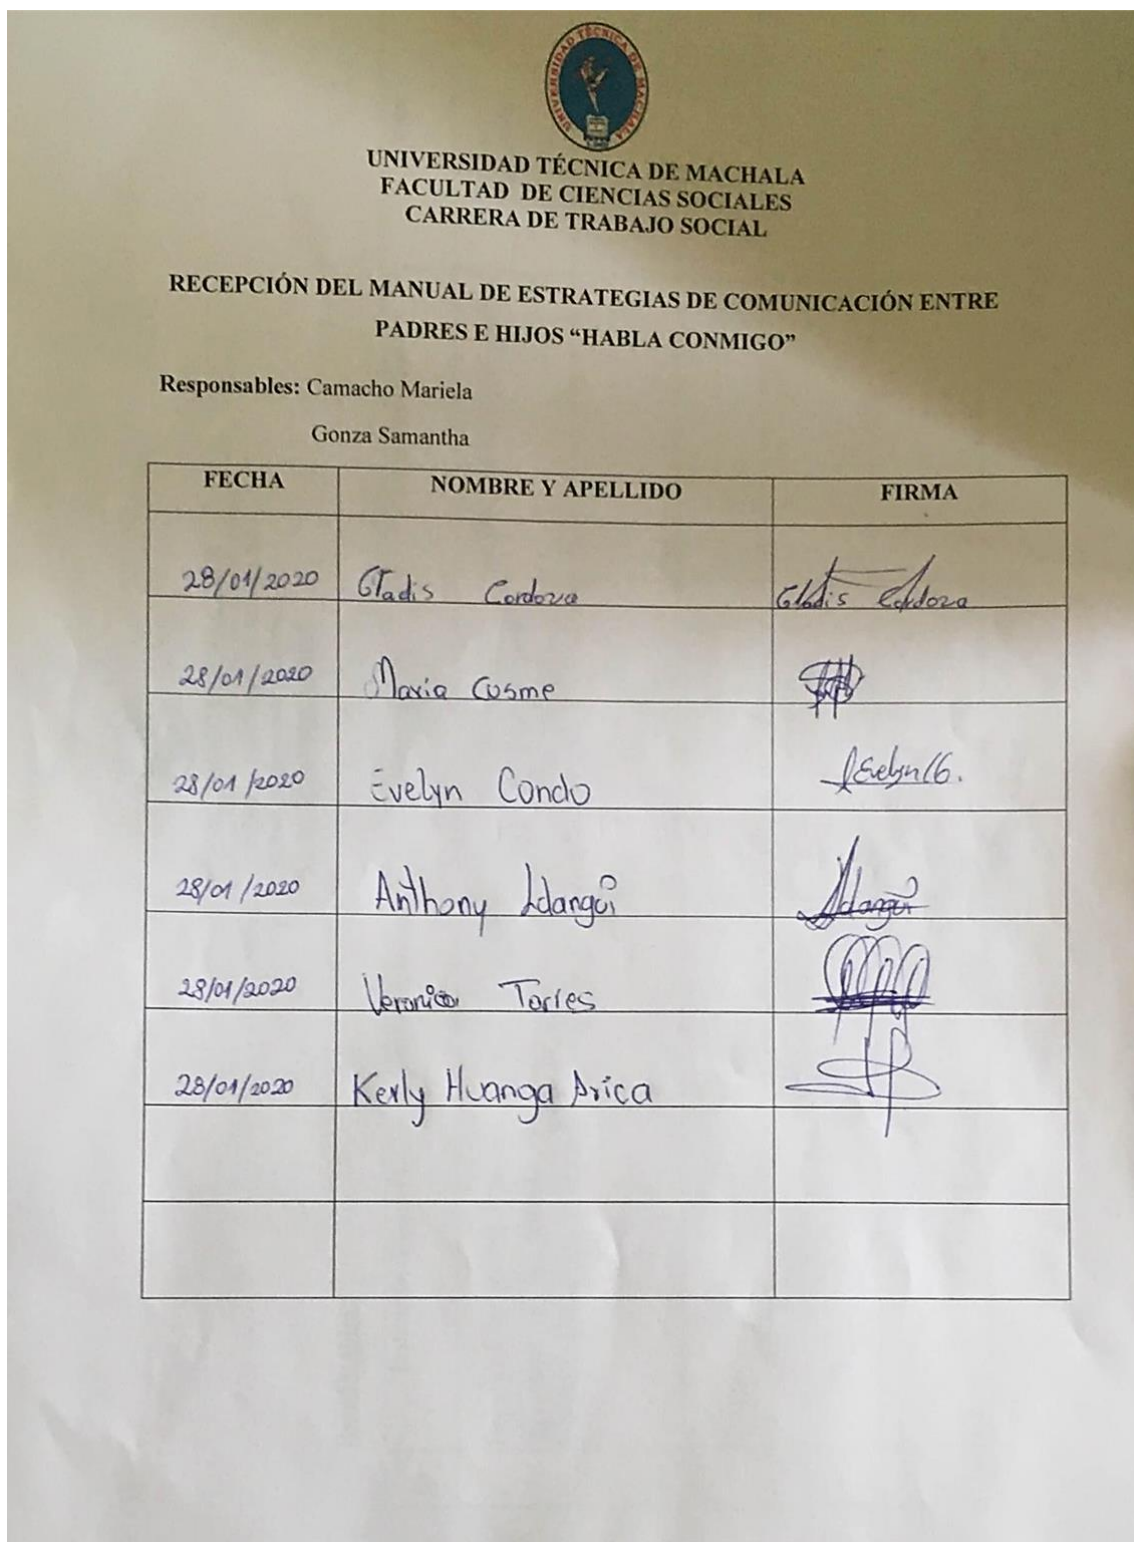 UNIVERSIDAD TÉCNICA DE MACHALA
UNIVERSIDAD TÉCNICA DE MACHALA
FACULTAD DE CIENCIAS SOCIALES
CARRERA DE TRABAJO SOCIAL
RECEPCIÓN DEL MANUAL DE ESTRATEGIAS DE COMUNICACIÓN ENTRE
PADRES E HIJOS “HABLA CONMIGO”
Responsables: Camacho Mariela
Gonza Samantha
FECHA NOMBRE Y APELLIDO FIRMA
28/01/2020 Gladis Cordova Gladis Cordova
28/01/2020 Maria Cosme
28/01/2020 Evelyn Condo Evelyn CG.
28/01/2020 Anthony Idangüi Idangüi
28/01/2020 Veronica Torres
28/01/2020 Kerly Huanga Arica